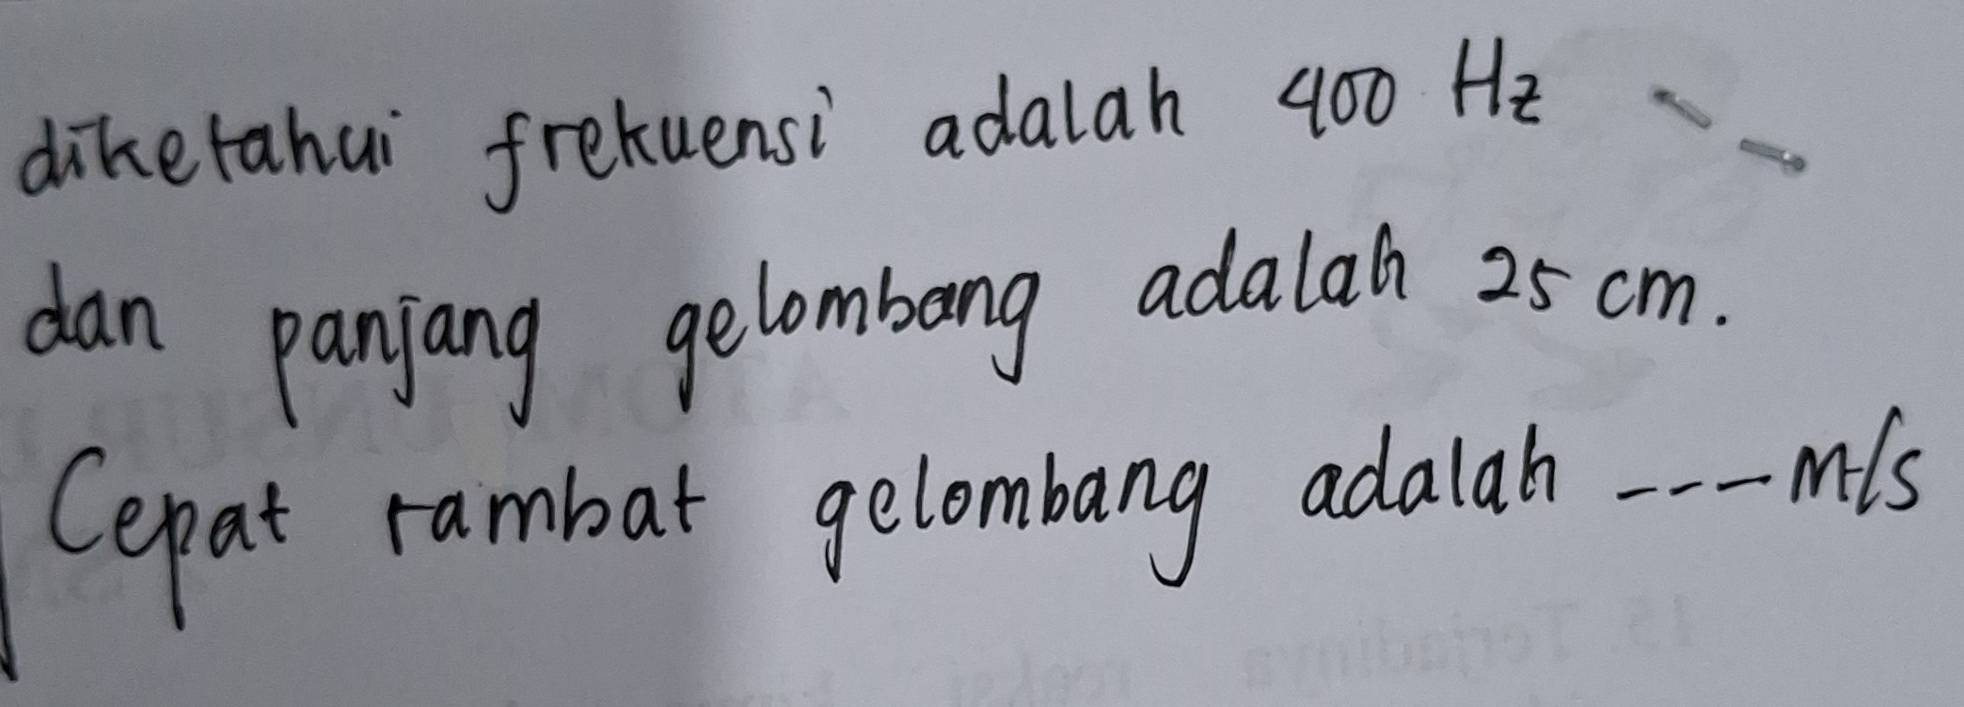 diketahui frekuensi adalah 400 Hz
dan panjang gelombang adalah 25 cm.
Cepat rambat gelombang adalah ---- m/s